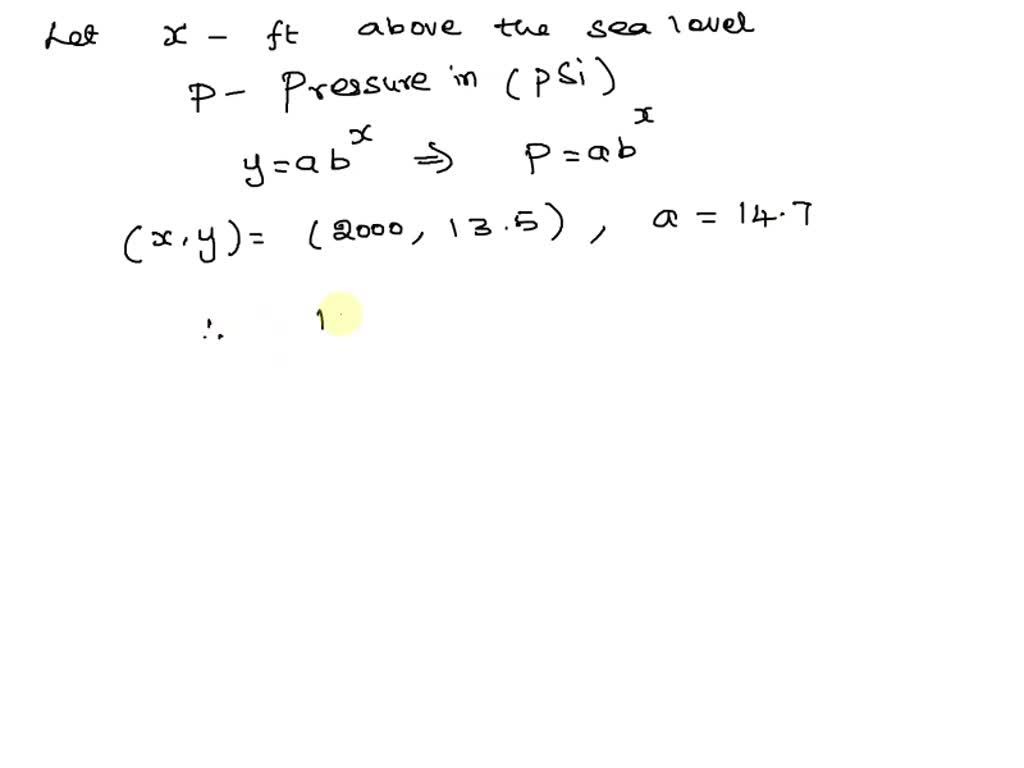 Let x - ft above the sea level
P - Pressure in (PSi)
y = ab^x ⇒ P = ab^x
(x, y) = (2000, 13.5), a = 14.7
∴ 1